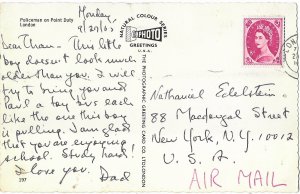 Policeman on Point Duty
London
Monday
9/20/65
Dear Mham - This little
boy doesn't look much
older than you. I will
try to bring you and
Paul a toy bus each
like the one this boy
is pulling. I am glad
that you are enjoying
school. Study hard!
I love you. Dad
197
NATURAL COLOUR SERIES
PHOTO
GREETINGS
THE PHOTOGRAPHIC GREETING CARD CO. LTD. LONDON
Nathaniel Edelstein
88 Macdougal Street
New York, N.Y. 10012
U. S. A.
AIR MAIL